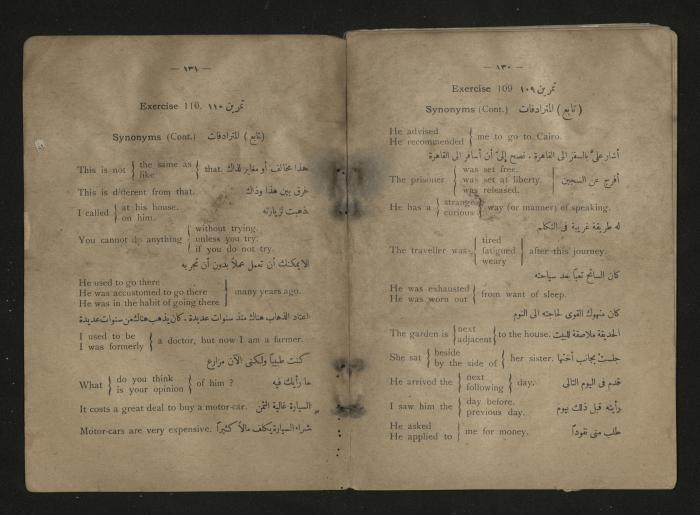 — ١٣٠ —
Exercise 109 تمرين ١٠٩
Synonyms (Cont.) (تابع) المترادفات
He advised
He recommended } me to go to Cairo.
أشار علىّ بالسفر الى القاهرة . نصح إلىّ أن أسافر الى القاهرة
The prisoner { was set free.
was set at liberty.
was released. } أفرج عن السجين
He has a { strange
curious } way (or manner) of speaking.
له طريقة غريبة فى التكلم
The traveller was { tired
fatigued
weary } after this journey.
كان السائح تعباً بعد سياحته
He was exhausted
He was worn out } from want of sleep.
كان منهوك القوى لحاجته الى النوم
The garden is { next
adjacent } to the house. الحديقة ملاصقة للبيت
She sat { beside
by the side of } her sister. جلست بجانب أختها
He arrived the { next
following } day. قدم فى اليوم التالى
I saw him the { day before.
previous day. رأيته قبل ذلك بيوم
He asked
He applied to } me for money. طلب منى نقوداً
— ١٣١ —
Exercise 110. تمرين ١١٠
Synonyms (Cont.) (تابع) المترادفات
This is not { the same as
like } that. هذا مخالف أو مغاير لذاك
This is different from that. فرق بين هذا وذاك
I called { at his house.
on him. ذهبت لزيارته
You cannot do anything { without trying.
unless you try.
if you do not try.
لا يمكنك أن تعمل عملاً بدون أن تجربه
He used to go there
He was accustomed to go there
He was in the habit of going there } many years ago.
اعتاد الذهاب هناك منذ سنوات عديدة . كان يذهب هناك من سنوات عديدة
I used to be
I was formerly } a doctor, but now I am a farmer.
كنت طبيباً ولكنى الآن مزارع
What { do you think
is your opinion } of him ? ما رأيك فيه
It costs a great deal to buy a motor-car. السيارة غالية الثمن
Motor-cars are very expensive. شراء السيارة يكلف مالاً كثيراً